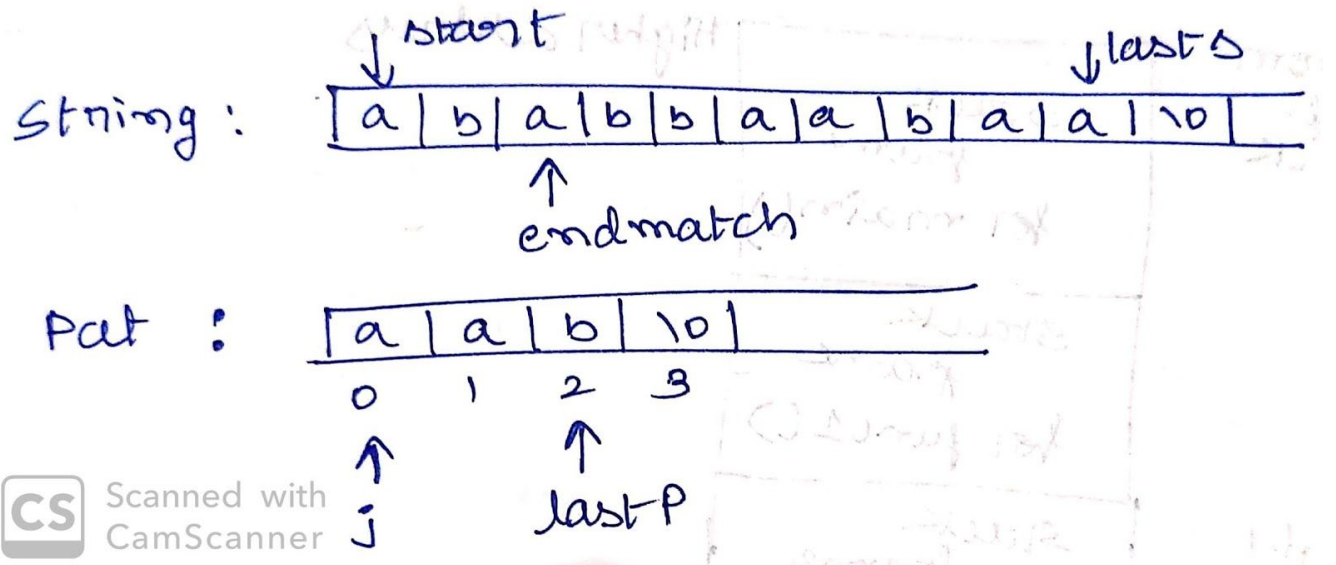 ↓ start
↓ lasts
String : | a | b | a | b | b | a | a | b | a | a | \0 |
↑
endmatch
Pat : | a | a | b | \0 |
0 1 2 3
↑ ↑
j lastp
CS Scanned with
CamScanner